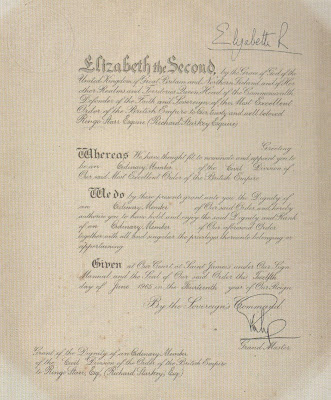 Elizabeth R
Elizabeth the Second, by the Grace of God of the
United Kingdom of Great Britain and Northern Ireland and of Her
other Realms and Territories Queen Head of the Commonwealth
Defender of the Faith and Sovereign of the Most Excellent
Order of the British Empire to Our trusty and well beloved
Ringo Starr Esquire (Richard Starkey Esquire)
Greeting
Whereas We have thought fit to nominate and appoint you to
be an Ordinary Member of the Civil Division of
Our said Most Excellent Order of the British Empire
We do by these presents grant unto you the Dignity of
an Ordinary Member of Our said Order and hereby
authorise you to have hold and enjoy the said Dignity and Rank
of an Ordinary Member of Our aforesaid Order
together with all and singular the privileges thereunto belonging or
appertaining
Given at Our Court at Saint James's under Our Sign
Manual and the Seal of Our said Order this Twelfth
day of June 1965 in the Fourteenth year of Our Reign
By the Sovereign's Command.
Philip
Grand Master
Grant of the Dignity of an Ordinary Member
of the Civil Division of the Order of the British Empire
to Ringo Starr, Esq. (Richard Starkey, Esq.)